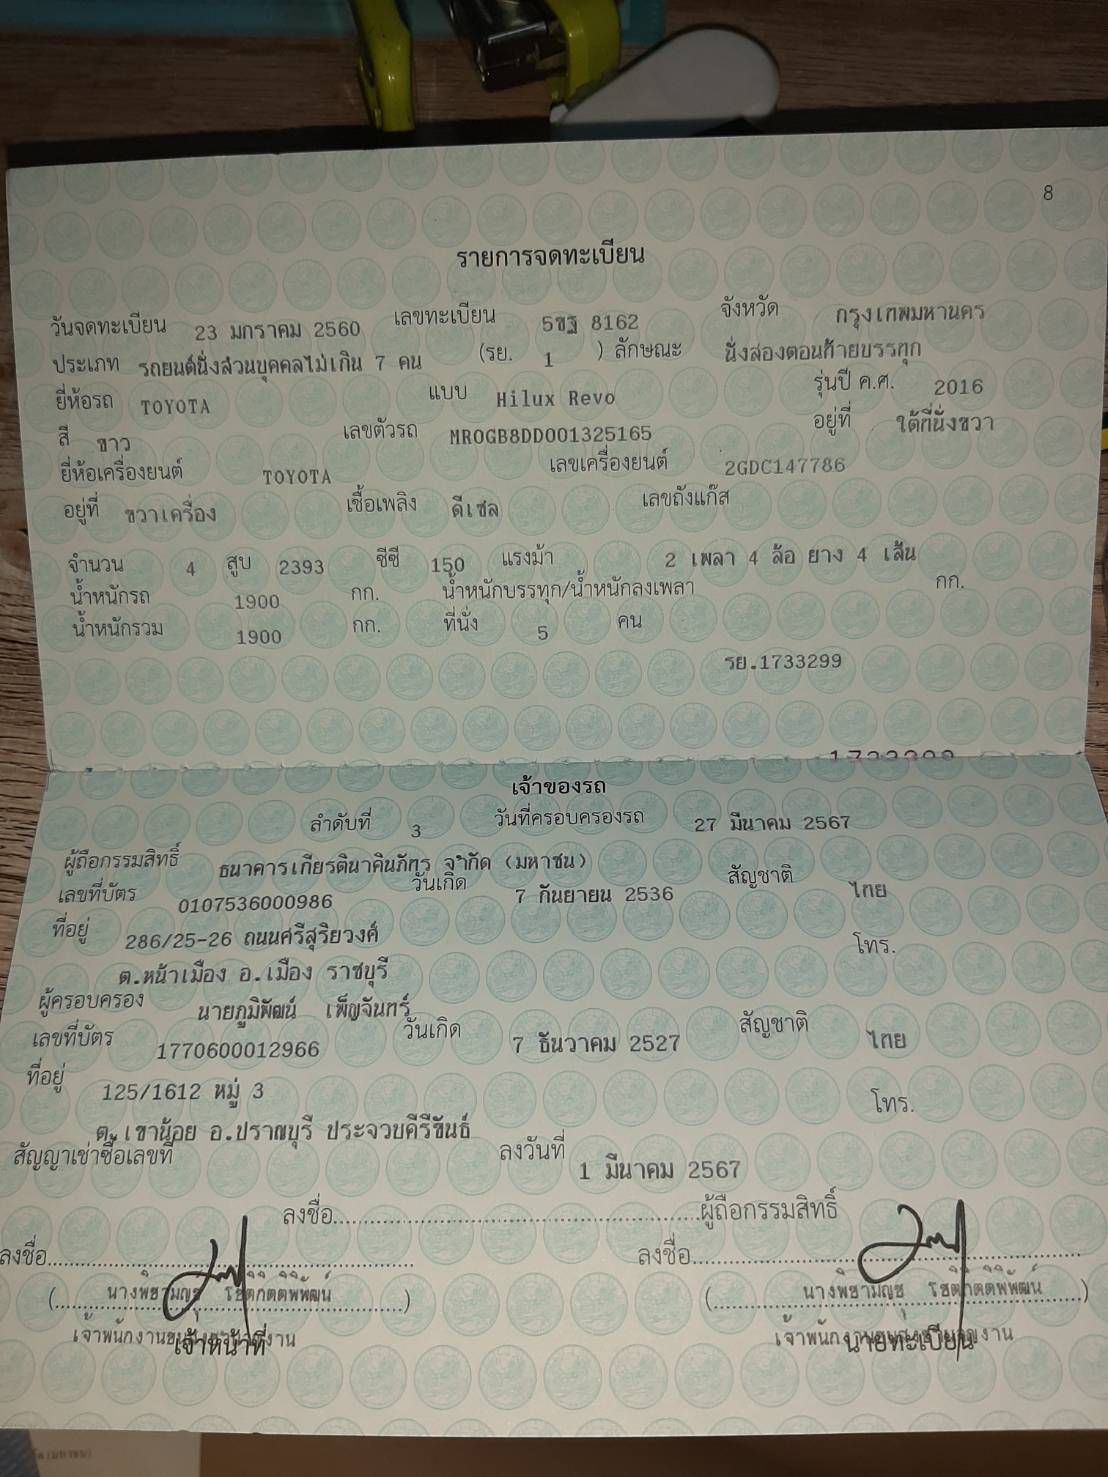 8
รายการจดทะเบียน
วันจดทะเบียน 23 มกราคม 2560 เลขทะเบียน 5ขฐ 8162 จังหวัด กรุงเทพมหานคร
ประเภท รถยนต์นั่งส่วนบุคคลไม่เกิน 7 คน (รย. 1 ) ลักษณะ นั่งสองตอนท้ายบรรทุก
ยี่ห้อรถ TOYOTA แบบ Hilux Revo รุ่นปี ค.ศ. 2016
สี ขาว เลขตัวรถ MR0GB8DD001325165 อยู่ที่ ใต้ที่นั่งขวา
ยี่ห้อเครื่องยนต์ TOYOTA เลขเครื่องยนต์ 2GDC147786
อยู่ที่ ขวาเครื่อง เชื้อเพลิง ดีเซล เลขถังแก๊ส
จำนวน 4 สูบ 2393 ซีซี 150 แรงม้า 2 เพลา 4 ล้อ ยาง 4 เส้น
น้ำหนักรถ 1900 กก. น้ำหนักบรรทุก/น้ำหนักลงเพลา กก.
น้ำหนักรวม 1900 กก. ที่นั่ง 5 คน
รย.1733299
เจ้าของรถ
ลำดับที่ 3 วันที่ครอบครองรถ 27 มีนาคม 2567
ผู้ถือกรรมสิทธิ์ ธนาคารเกียรตินาคินภัทร จำกัด (มหาชน)
เลขที่บัตร 0107536000986 วันเกิด 7 กันยายน 2536 สัญชาติ ไทย
ที่อยู่ 286/25-26 ถนนศรีสุริยวงศ์ โทร.
ต.หน้าเมือง อ.เมือง ราชบุรี
ผู้ครอบครอง นายภูมิพัฒน์ เพ็ญจันทร์
เลขที่บัตร 1770600012966 วันเกิด 7 ธันวาคม 2527 สัญชาติ ไทย
ที่อยู่ 125/1612 หมู่ 3 โทร.
ต.เขาน้อย อ.ปราณบุรี ประจวบคีรีขันธ์
สัญญาเช่าซื้อเลขที่ ลงวันที่ 1 มีนาคม 2567
ลงชื่อ ผู้ถือกรรมสิทธิ์
ลงชื่อ ลงชื่อ
( ) ( )
เจ้าหน้าที่ นายทะเบียน